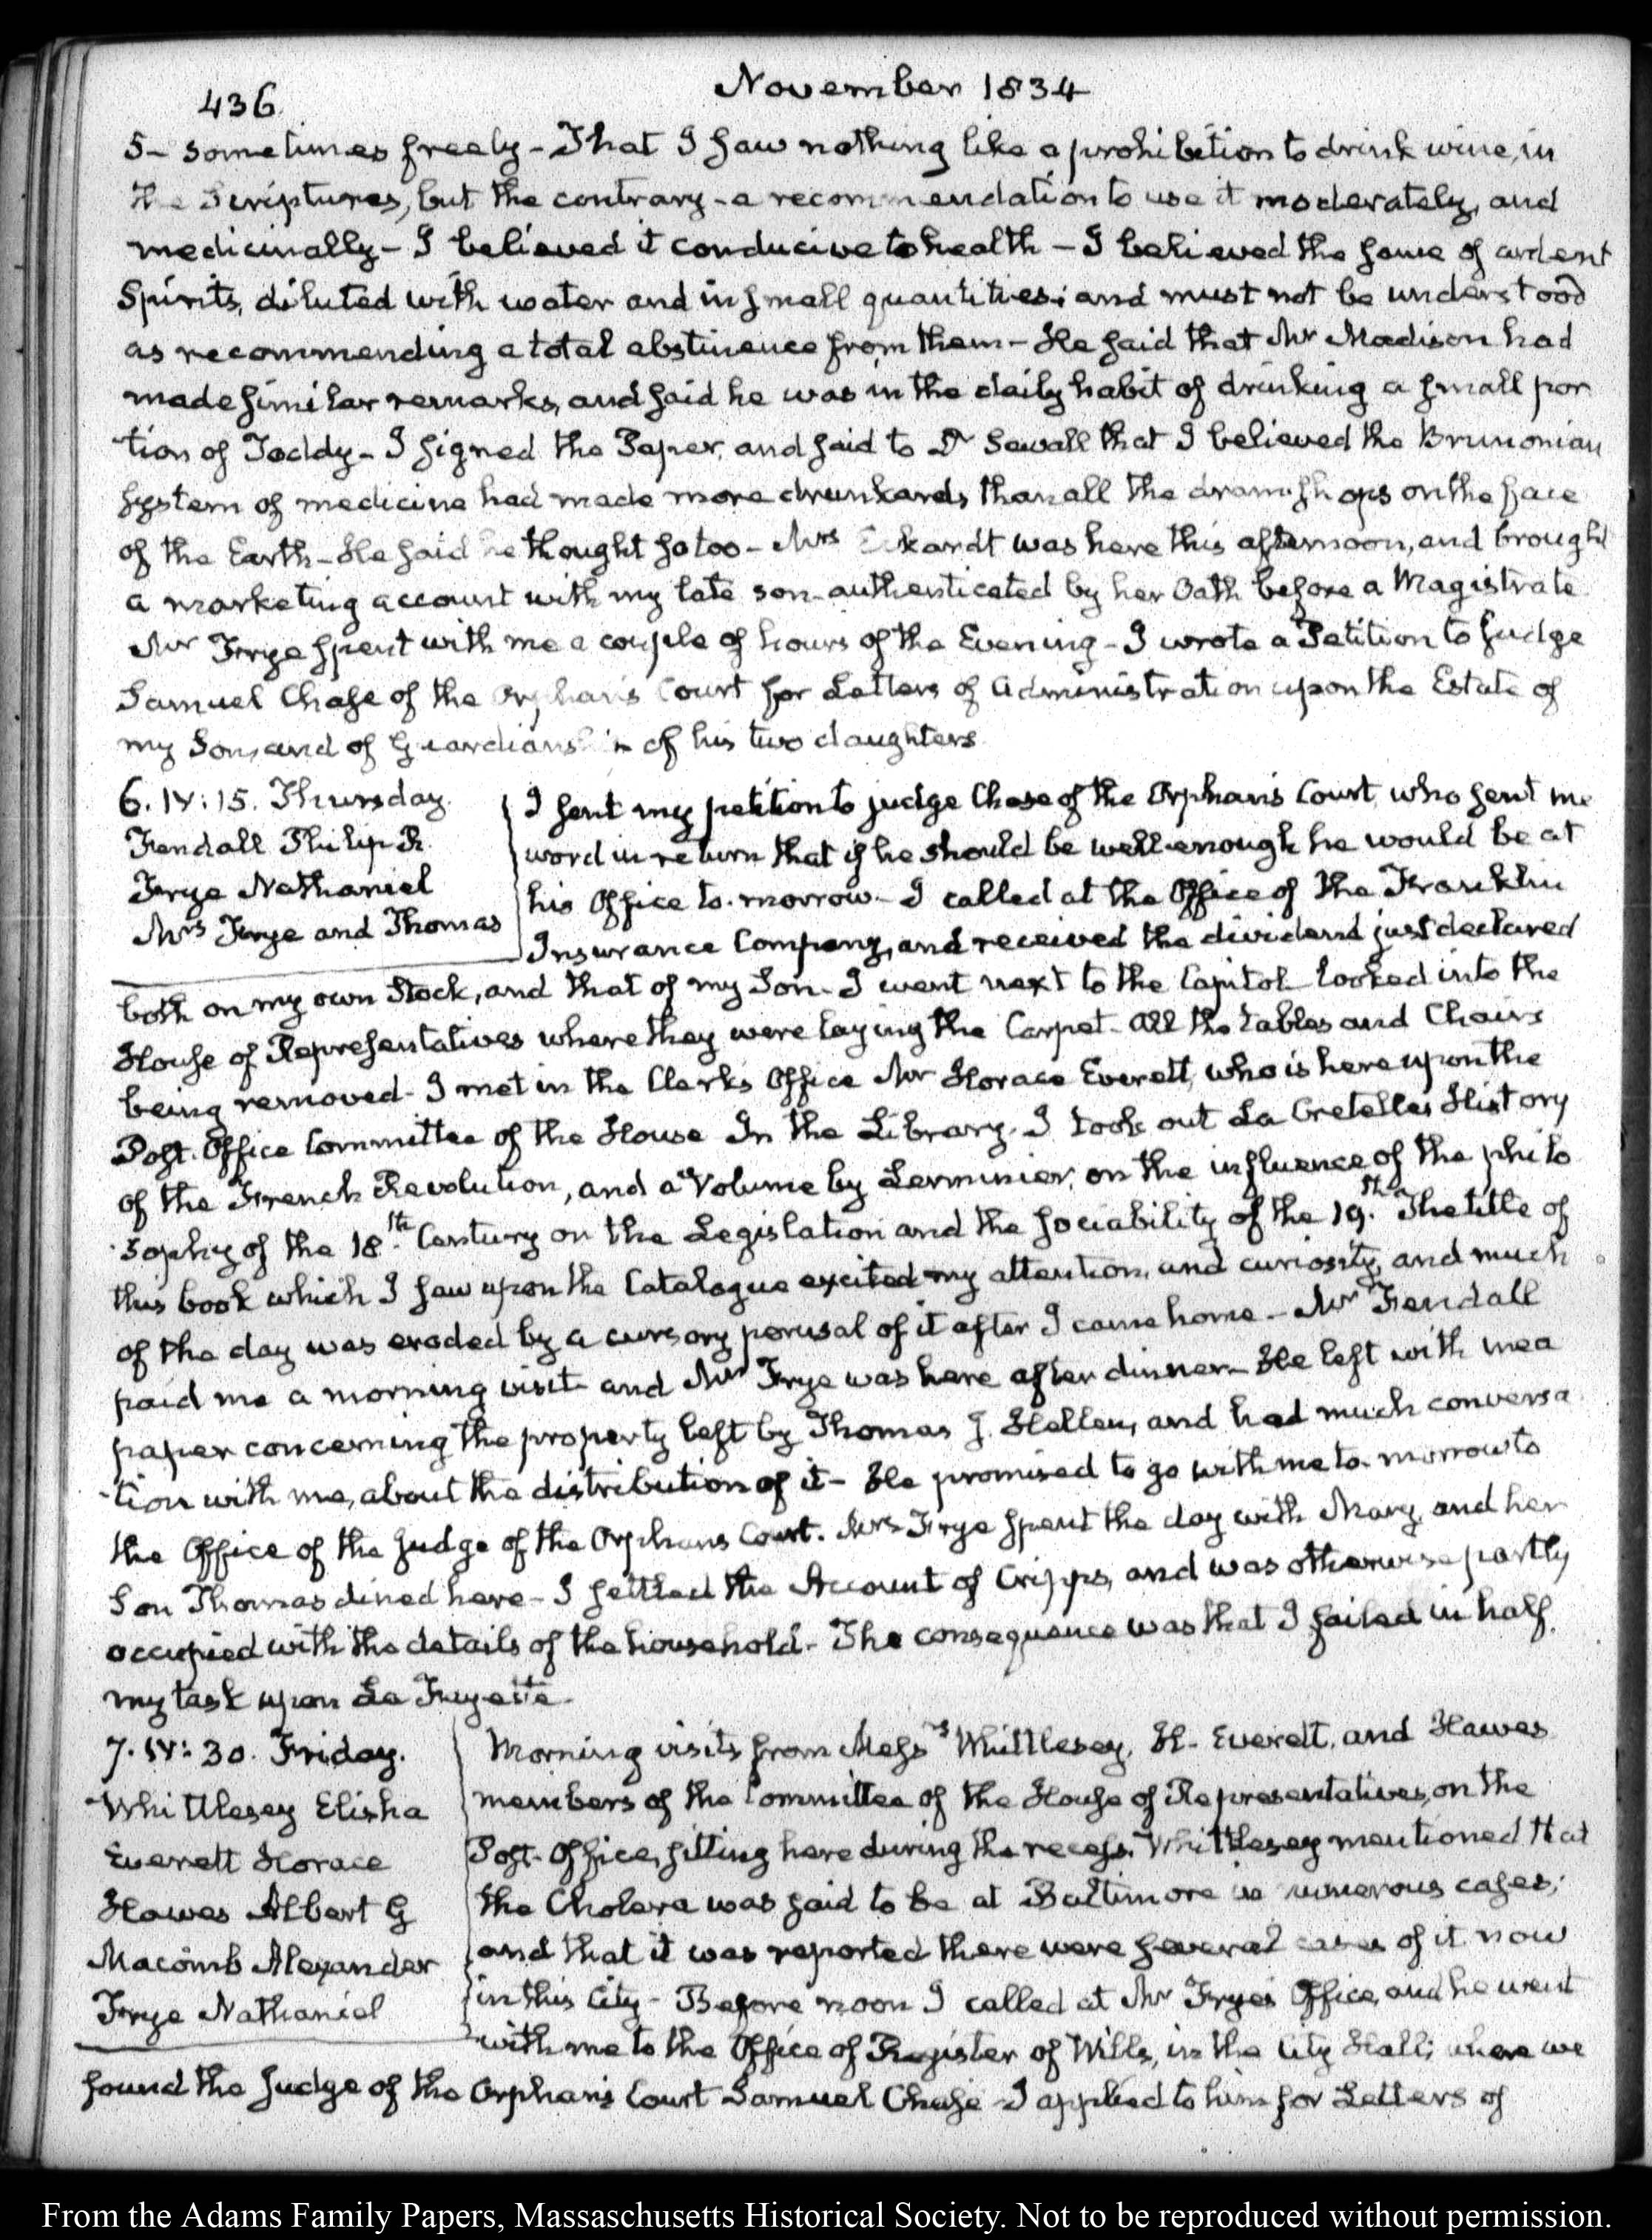 436
November 1834
5– sometimes freely – That I saw nothing like a prohibition to drink wine, in
the Scriptures, but the contrary – a recommendation to use it moderately, and
medicinally – I believed it conducive to health – I believed the same of ardent
Spirits, diluted with water and in small quantities; and must not be understood
as recommending a total abstinence from them – He said that Mr Madison had
made similar remarks, and said he was in the daily habit of drinking a small por
tion of Toddy – I signed the Paper, and said to Dr Sewall that I believed the Brunonian
System of medicine had made more drunkards, than all the dram-shops on the face
of the Earth – He said he thought so too – Mrs Eckardt was here this afternoon, and brought
a marketing account with my late son – authenticated by her Oath before a Magistrate
Mr Frye spent with me a couple of hours of the Evening – I wrote a Petition to Judge
Samuel Chase of the Orphan's Court for Letters of Administration upon the Estate of
my Son, and of Guardianship of his two daughters.
6. IV: 15. Thursday.
Fendall Philip R.
Frye Nathaniel
Mrs Frye and Thomas
I sent my petition to judge Chase of the Orphan's Court, who sent me
word in return that if he should be well enough he would be at
his Office to-morrow – I called at the Office of the Franklin
Insurance Company, and received the dividend just declared
both on my own Stock, and that of my Son – I went next to the Capitol – looked into the
House of Representatives where they were laying the Carpet – All the tables and Chairs
being removed – I met in the Clerk's Office Mr Horace Everett, who is here upon the
Post-Office Committee of the House In the Library, I took out La Cretelle's History
of the French Revolution, and a Volume by Lerminier, on the influence of the philo
sophy of the 18th Century on the Legislation and the sociability of the 19th. The title of
this book which I saw upon the Catalogue excited my attention, and curiosity, and much
of the day was eroded by a cursory perusal of it after I came home – Mr Fendall
paid me a morning visit and Mr Frye was here after dinner – He left with me a
paper concerning the property left by Thomas J. Hellen, and had much conversa
tion with me, about the distribution of it – He promised to go with me to-morrow to
the Office of the Judge of the Orphans Court. Mrs Frye spent the day with Mary, and her
Son Thomas dined here – I settled the Account of Cripps, and was otherwise partly
occupied with the details of the household – The consequence was that I failed in half
my task upon La Fayette.
7. IV: 30. Friday.
Whittlesey Elisha
Everett Horace
Hawes Albert G
Macomb Alexander
Frye Nathaniel
Morning visits from Messrs Whittlesey, H. Everett, and Hawes
members of the Committee of the House of Representatives, on the
Post-Office, sitting here during the recess. Whittlesey mentioned that
the Cholera was said to be at Baltimore in numerous cases;
and that it was reported there were several cases of it now
in this City – Before noon I called at Mr Frye's Office, and he went
with me to the Office of Register of Wills, in the City Hall; where we
found the Judge of the Orphan's Court Samuel Chase – I applied to him for Letters of
From the Adams Family Papers, Massachusetts Historical Society. Not to be reproduced without permission.